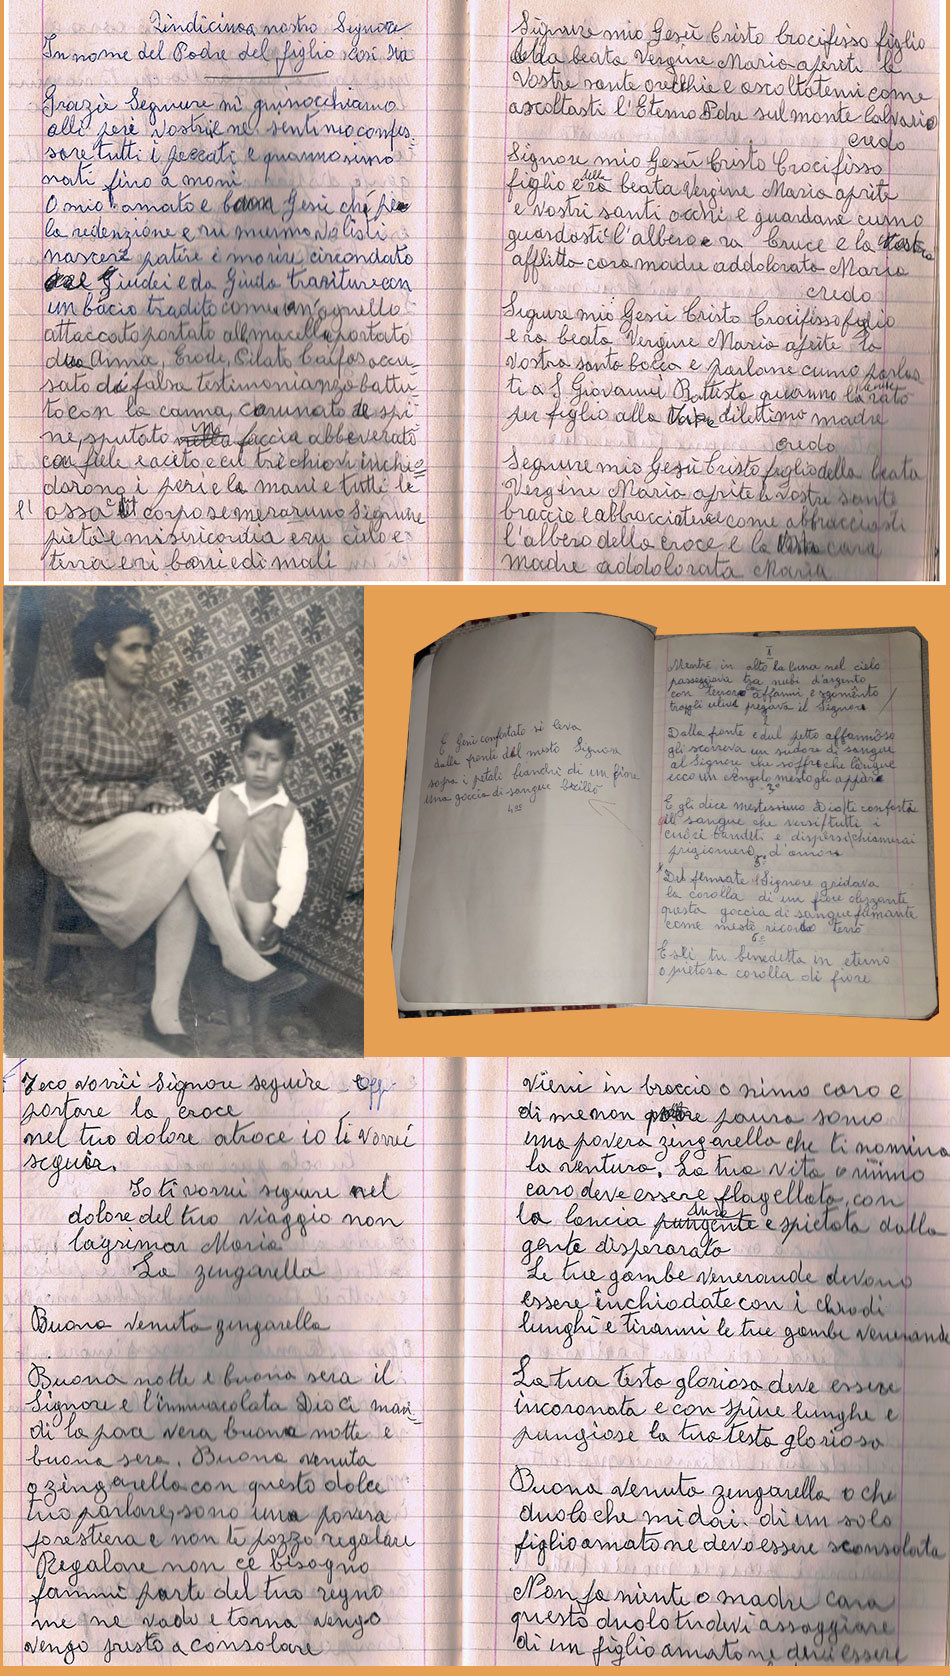 Quindicina nostro Signore
In nome del Padre del figlio cosi sia
Grazie Segnure ni ginocchiamo
alli peri vostri e ne sentimo confes=
sare tutti i peccati e quanno simo
nati fino a moni
O mio amato e buon Gesù che pe
la redenzione e ru munno volisti
nascere patire e morire circondato
dae Giudei e da Giuda traditure con
un bacio tradito comu un'agnello
attaccato portato al macello portato
da Anna, Erode, Pilato Caifas accu=
sato da falsa testimonianza battu=
to con la canna, corunato de spi=
ne, sputato 'nfaccia abbeverato
con fiele e aceto e cu tri chiovi inchio=
darono i peri e la mani e tutti le
ossa c'ill corpo se meraruno Signure
pietà e misericordia e ru cielo e
terra e ri barri e di mali
Signure mio Gesù Cristo Crocifisso figlio
della beata Vergine Maria apriti le
vostre sante orecchie e ascoltatemi come
ascoltasti l'Eterno Padre sul monte Calvario
credo
Signore mio Gesù Cristo Crocifisso
figlio e ra della beata Vergine Maria aprite
e vostri santi occhi e guardane cumo
guardasti l'albero e ra Cruce e la vostra
afflitta cara madre addolorata Maria
credo
Segure mio Gesù Cristo Crocifisso figlio
e ra beata Vergine Maria aprite la
vostra santa bocca e parlane cumo parlas
ti a S Giovanni Battista quanno la
per figlio alla dilettima madre
credo
Segnure mio Gesù Cristo figlio della beata
Vergine Maria aprite le vostri sante
braccia e abbracciatece come abbracciasti
l'albero della croce e la vostra cara
madre addolorata Maria
E Gesù confortato si leva
dalla fronte del mesto Signore
sopra i petali bianchi di un fiore
una goccia di sangue brillò
4°
I
Mentre in alto la luna nel cielo
passeggiava tra nubi d'argento
con terrore affanni e sgomento
tra gli ulivi pregava il Signore
Dalla fronte e dal petto affannoso
gli scorreva un sudore di sangue
al Signore che soffre che langue
ecco un Angelo mesto gli appare
3°
E gli dice mestissimo Dio ti conforta
il sangue che versi tutti i
cuori banditi e dispersi chiamerai
prigioniero d'amore
5°
Del fermate il Signore gridava
la corolla di un fiore olezzante
questa goccia di sangue fumante
come mesto ricordo terrò
6°
E sii tu benedetta in eterno
o pietosa corolla di fiore
Teco vorrei Signore seguire Off-
portare la croce
nel tuo dolore atroce io ti vorrei
seguir.
Io ti vorrei seguire nel
dolore del tuo viaggio non
lagrimar Maria
La zingarella
Buona venuta zingarella
Buona notte e buona sera il
Signore e l'immacolata Dio ci man=
di la paca vera buona notte e
buona sera. Buona venuta
o zingarella con questo dolce
tuo parlare, sono una povera
forestiera e non te pozzo regalare
Regalare non cé bisogno
fammi parte del tuo regno
me ne vadu e torna vengo
vengo presto a consolare
Vieni in braccio o ninno caro e
di me non paura sono
una povera zingarella che ti nomina
la ventura. La tua vita o ninno
caro deve essere flagellata con
la lancia pungente dura e spietata dalla
gente disperarata
Le tue gambe venerande devono
essere inchiodate con i chiodi
lunghi e tiranni le tue gambe venerande
La tua testa gloriosa deve essere
incoronata e con spine lunghe e
pungiose la tua testa gloriosa
Buona venuta zingarella o che
duolo che mi dai. di un solo
figlio amato ne devo essere sconsolata
Non fa niente o madre cara
questo duolo tu devi assaggiare
di un figlio amato ne devi essere